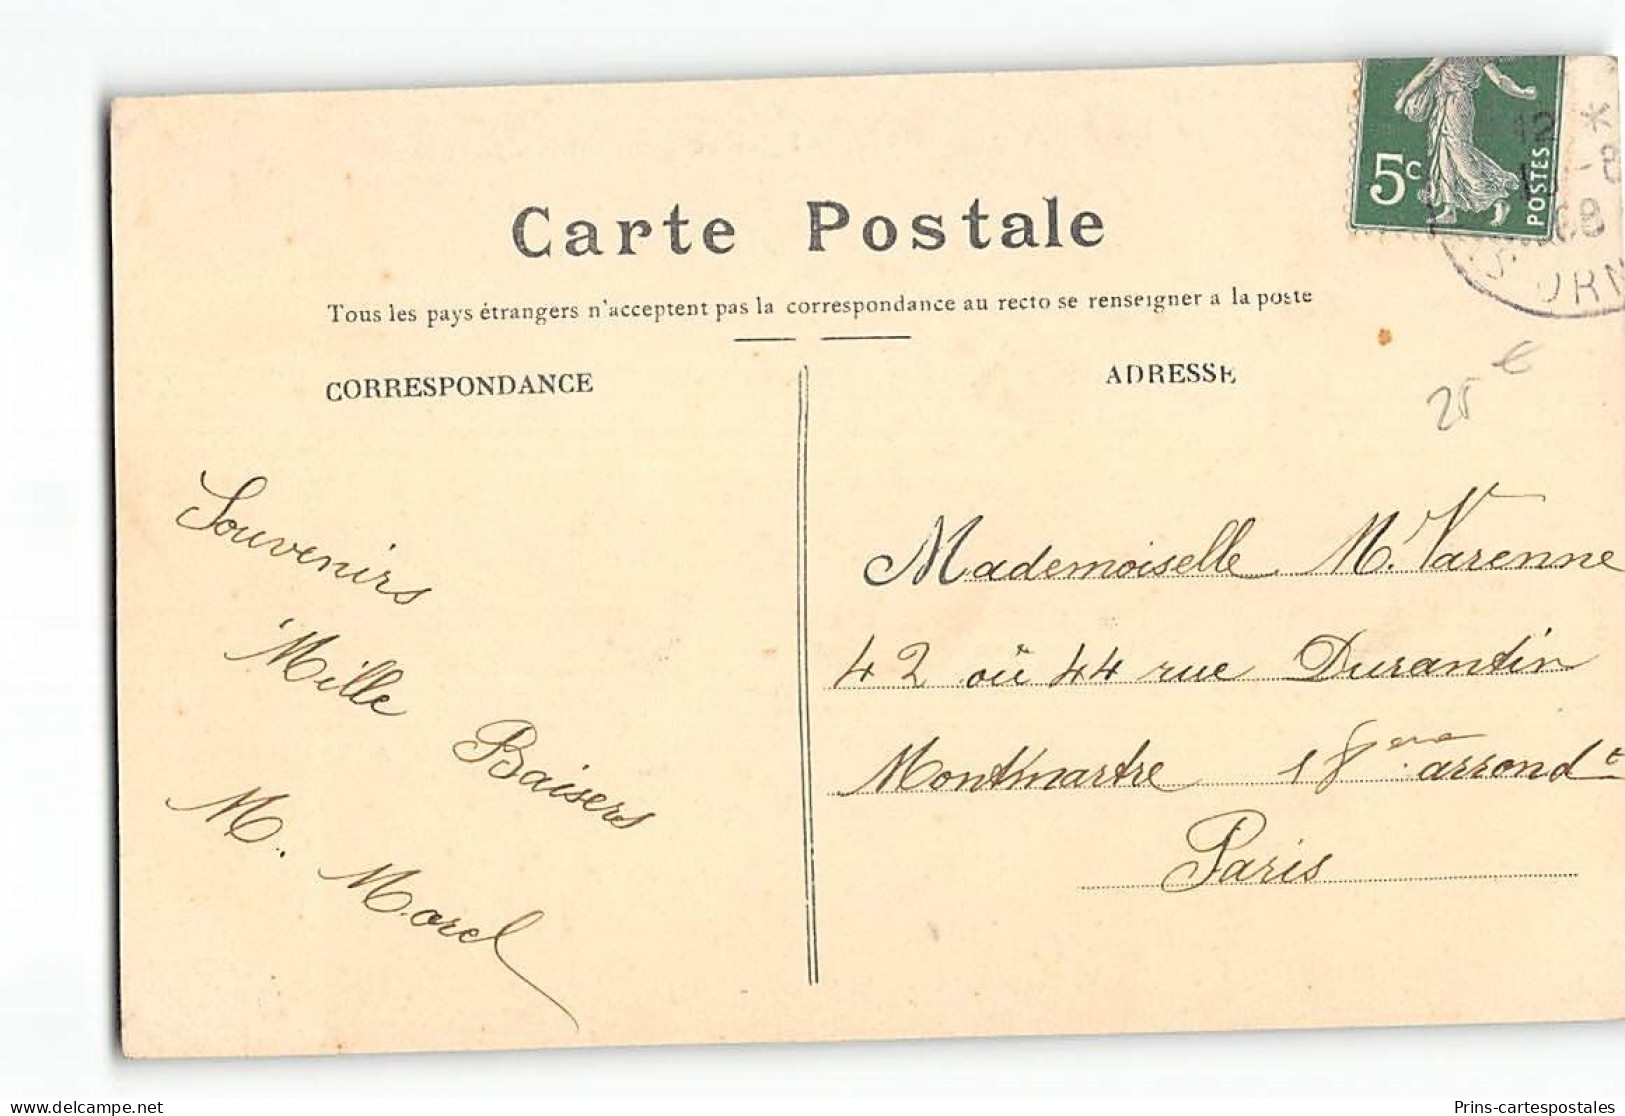 Carte Postale
Tous les pays étrangers n'acceptent pas la correspondance au recto se renseigner a la poste
CORRESPONDANCE
ADRESSE
5c
POSTES
*
-8
08
ORN
25 €
Souvenirs
Mille Baisers
M. Morel
Mademoiselle M. Varenne
42 où 44 rue Durantin
Montmartre 18ème arrondt
Paris
Prins-cartespostales
delcampe.net